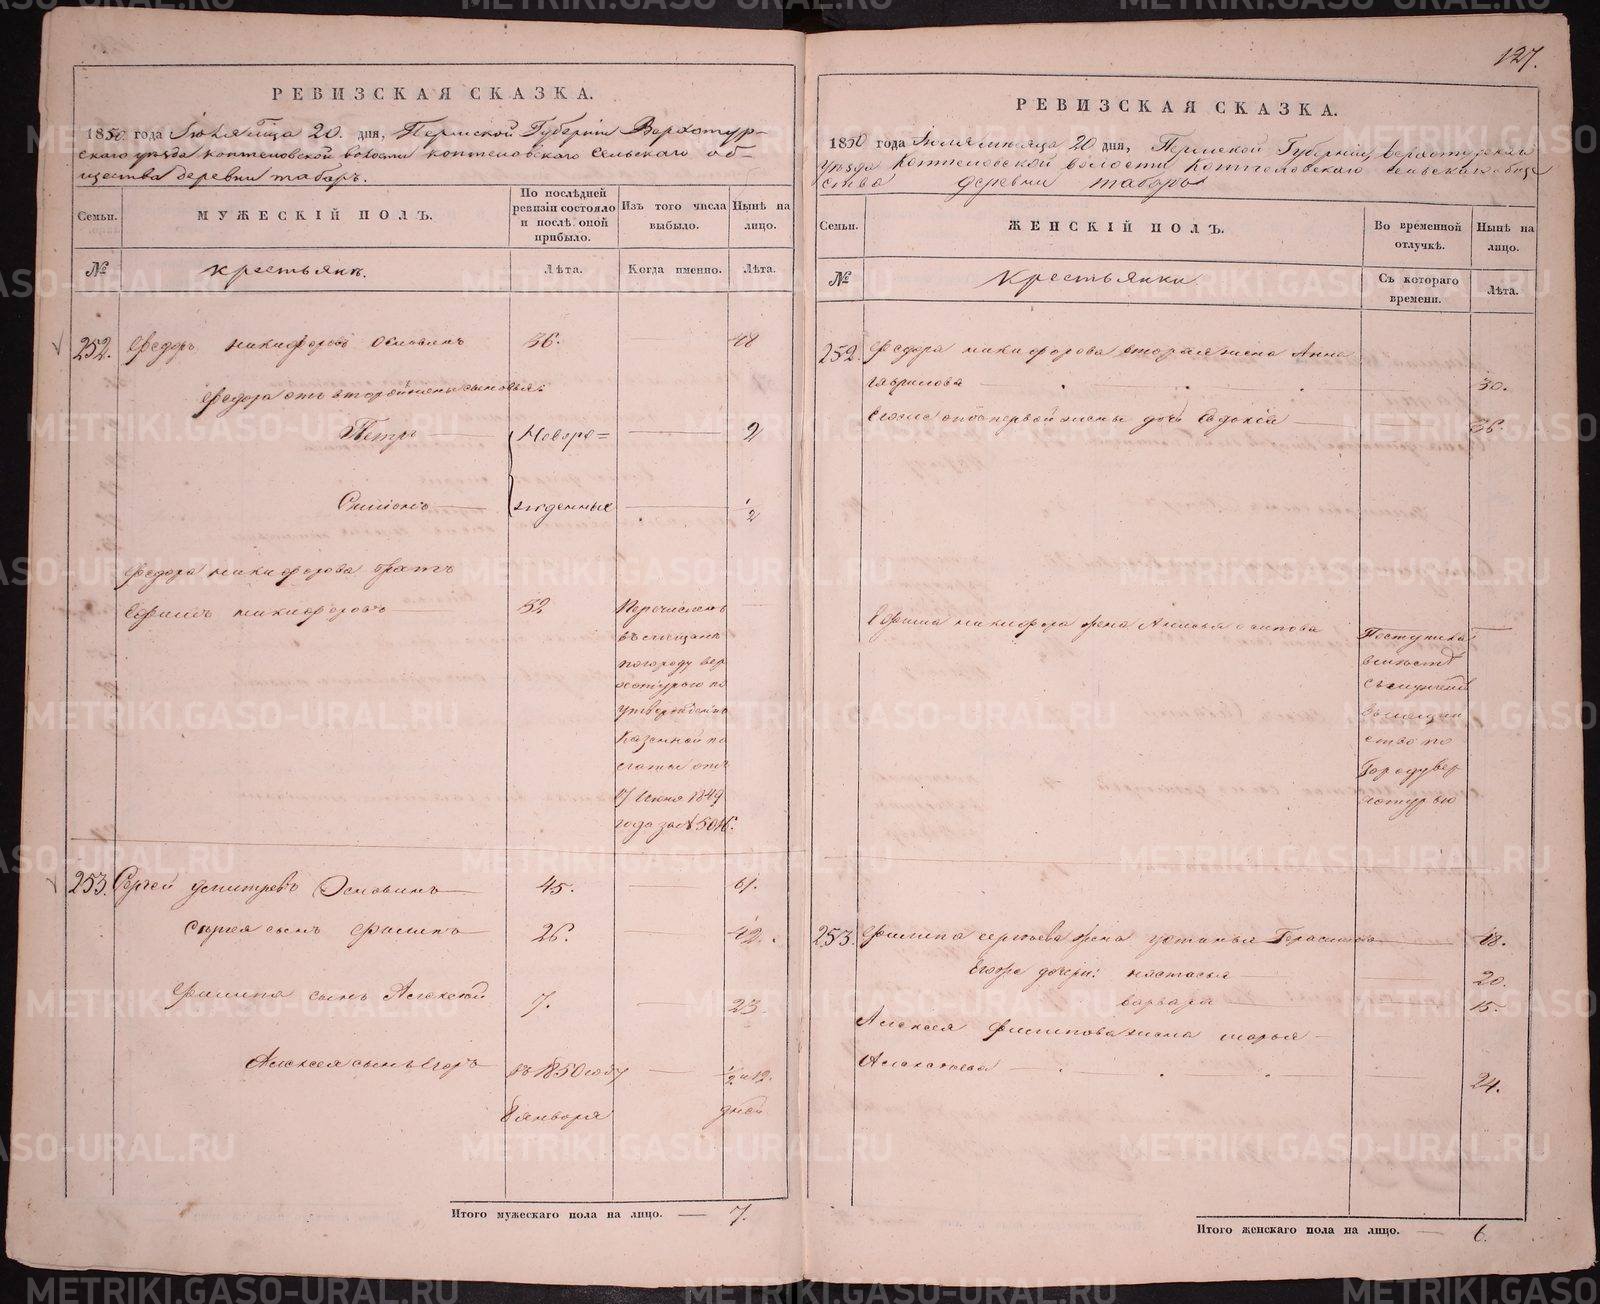 127.
РЕВИЗСКАЯ СКАЗКА.
1850 года Июля м-ца 20. дня, Пермской Губерніи Верхотур-
скаго уезда коптеловской волости коптеловскаго сельскаго об-
щества деревни табаръ.
Семьи.
МУЖЕСКІЙ ПОЛЪ.
По послѣдней ревизіи состояло и послѣ оной прибыло.
Изъ того числа выбыло.
Нынѣ на лицо.
№
крестьянъ.
Лѣта.
Когда именно.
Лѣта.
252. Федоръ никифоровъ Основинъ 36. — 48
Федора отъ второй жены сыновья:
Петръ — Новоро= — 2
Симіонъ — жденные — 1/2
Федора никифорова братъ
Ефимъ никифоровъ — 52 Перечисленъ —
въ мещане
по городу вер
хотурью по
утвержденію
Казенной па
латы отъ
17 Июня 1849
года за № 5046.
253. Сергей дмитревъ Основинъ — 45. — 61.
Сергея сынъ Филипъ — 26. — 42.
Филипа сынъ Алексей 7. — 23.
Алексея сынъ Егоръ въ 1850 году — 1/2 и 12.
8 января дней
Итого мужескаго пола на лицо. — 7.
РЕВИЗСКАЯ СКАЗКА.
1850 года Июля месяца 20 дня, Пермской Губерніи верхотурскаго
Уезда Коптеловской волости Коптеловскаго сельскаго обще
ства деревни табаръ
Семьи.
ЖЕНСКІЙ ПОЛЪ.
Во временной отлучкѣ.
Нынѣ на лицо.
№
Крестьянки
Съ котораго времени.
Лѣта.
252. Федора никифорова вторая жена Анна
гаврилова — 30.
Егоже отъ первой жены дочь Евдокія — — 36.
Ефима никифорова жена Анисья осипова Поступила
вместе
съ мужемъ
въ мещан
ство по
Городу вер
хотурью
253. Филипа сергеева жена устинья Герасимова — 48.
Егоже дочери: настасья — 20.
варвара — 15.
Алексея филипова жена марья —
Алексеева — 24.
Итого женскаго пола на лицо. — 6.
METRIKI.GASO-URAL.RU